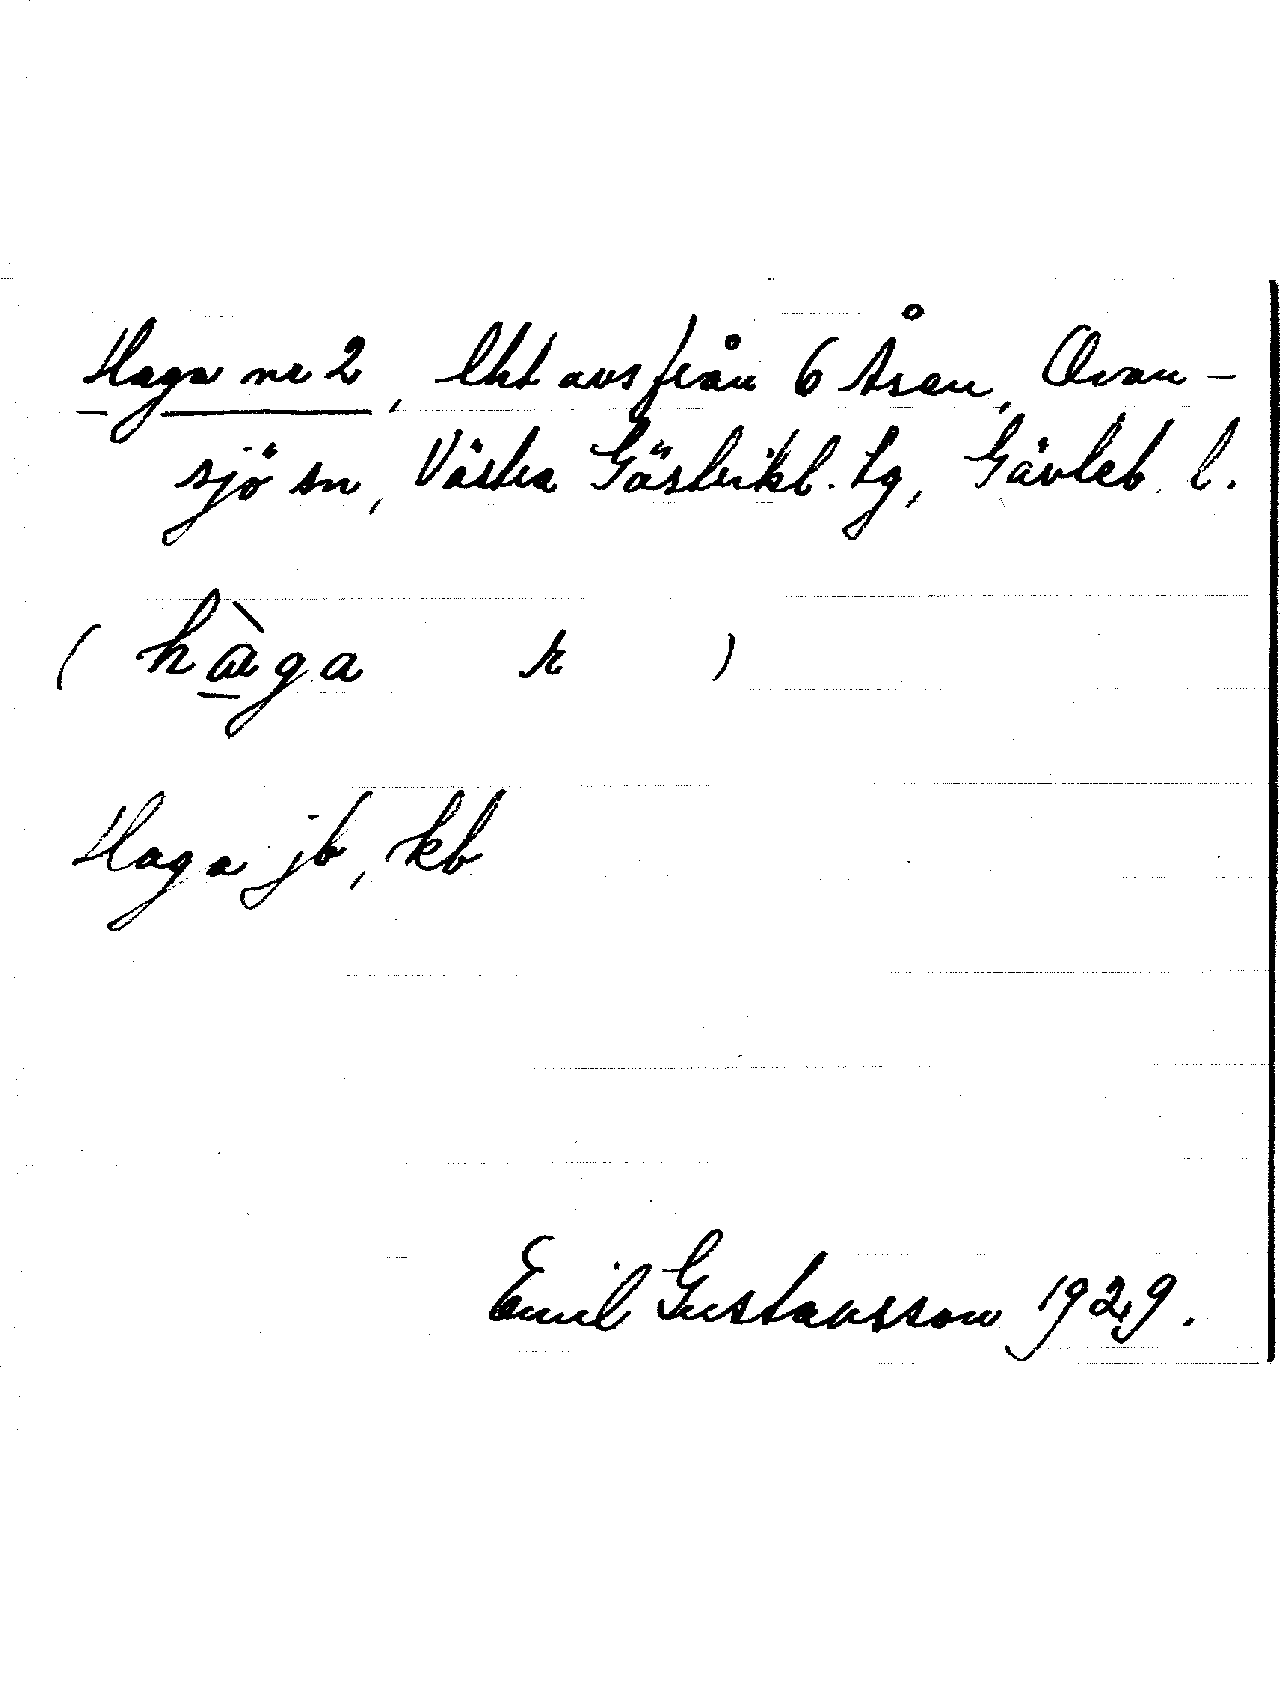 Haga nr 2, lht avs från 6 Åsen, Ovan-
sjö sn, Västra Gästrikl. tg, Gävleb. l.
( hàga r )
Haga jb, kb
Emil Gustavsson 1929.